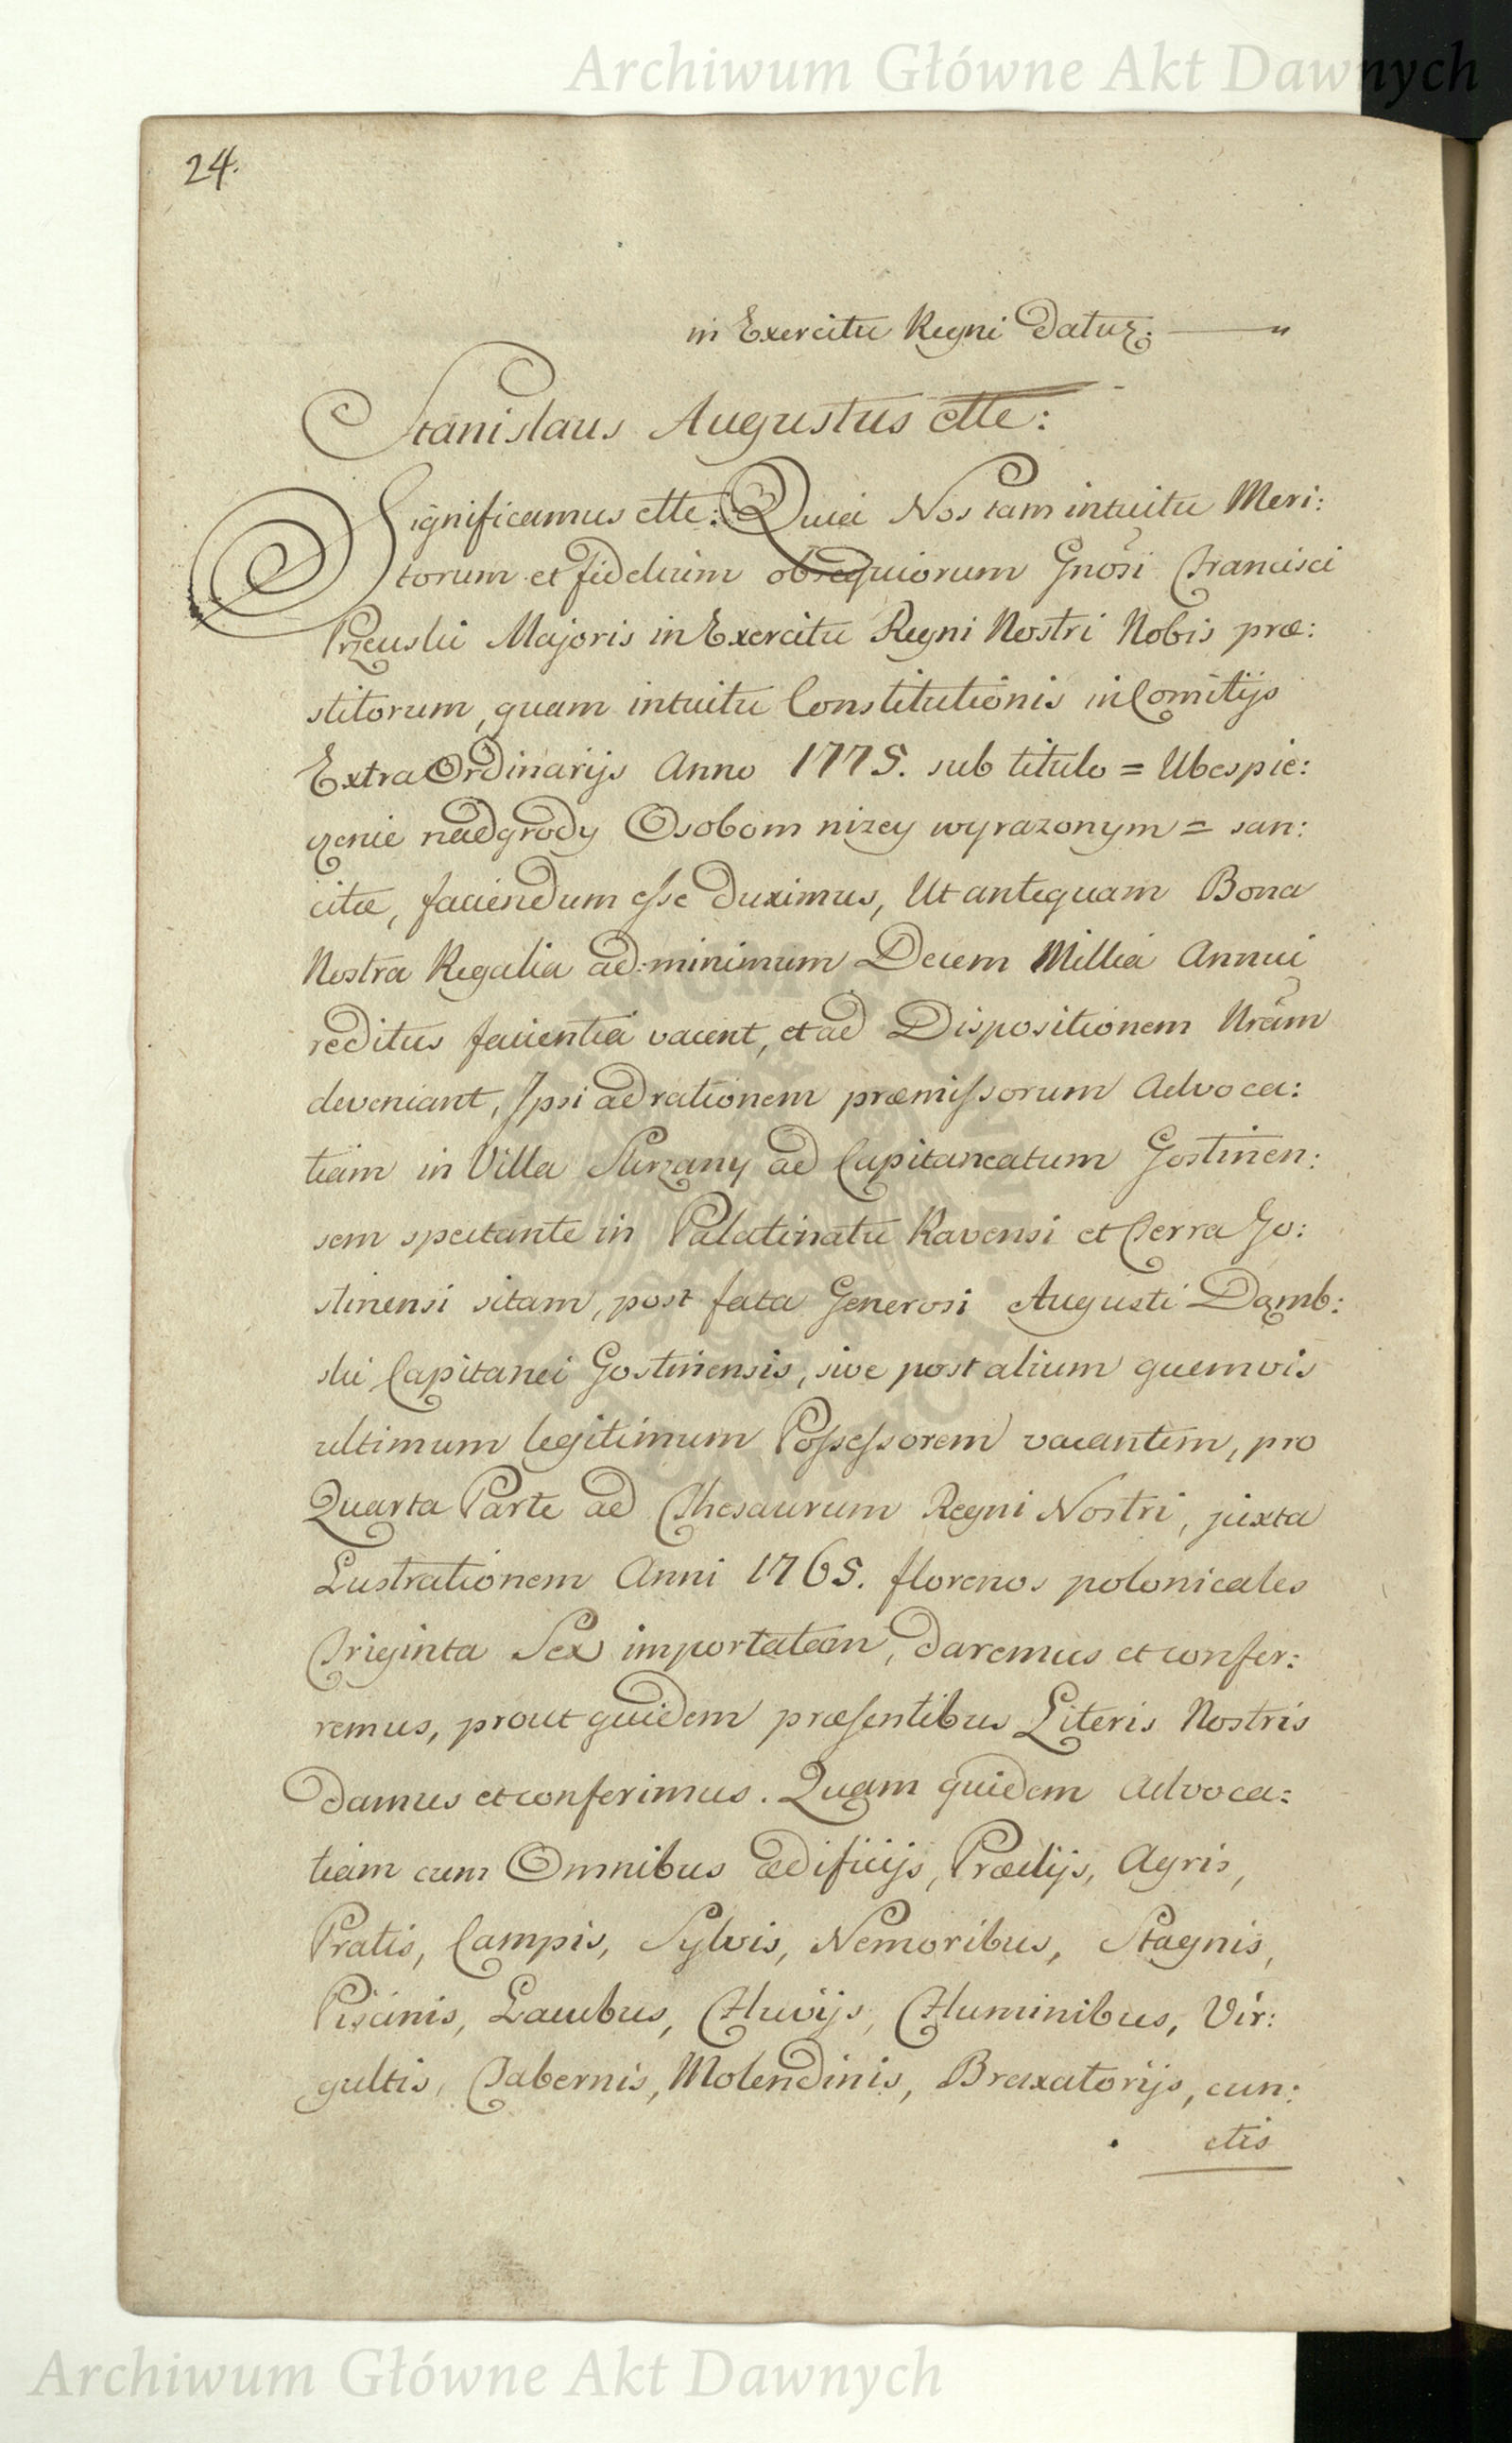 Archiwum Główne Akt Dawnych
24.
in Exercitu Regni Datur.
Stanislaus Augustus ette:
Significamus ette: Quia Nos tam intuitu Meri:
torum et fidelium obsequiorum Gnosi Francisci
Majoris in Exercitu Regni Nostri Nobis præ:
stitorum, quam intuitu Constitutionis in Comitijs
Extra Ordinarijs Anno 1775. sub titulo = Ubespie:
czenie nadgrody Osobom nizey wyrazonym = san:
citæ, faciendum esse Duximus, Ut antequam Bona
Nostra Regalia ad minimum Decem Millia Annui
reditus facientia vacent, et ad Dispositionem Nram
deveniant, Ipsi ad rationem præmissorum Advoca:
tiam in Villa ad Capitaneatum Gostinen:
sem spectante in Palatinatu Ravensi et Terra Go:
stinensi sitam, post fata Generosi Augusti Dąmb:
ski Capitanei Gostinensis, sive post alium quemvis
ultimum legitimum Possessorem vacantem, pro
Quarta Parte ad Thesaurum Regni Nostri, juxta
Lustrationem Anni 1765. florenos polonicales
Triginta Sex importatam, daremus et confer:
remus, prout quidem præsentibus Literis Nostris
damus et conferimus. Quam quidem Advoca:
tiam cum Omnibus ædificijs, Prædijs, Agris,
Pratis, Campis, Sylvis, Nemoribus, Stagnis,
Piscinis, Lacubus, Fluvijs, Fluminibus, Vir:
gultis, Tabernis, Molendinis, Braxatorijs, cun:
ctis
Archiwum Główne Akt Dawnych